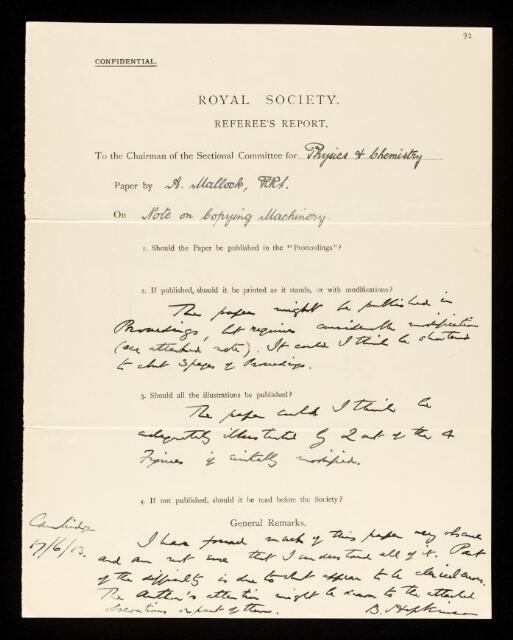 92
CONFIDENTIAL.
ROYAL SOCIETY.
REFEREE'S REPORT.
To the Chairman of the Sectional Committee for Physics & Chemistry
Paper by A. Mallock, FRS.
On Note on Copying Machinery.
1. Should the Paper be published in the "Proceedings"?
2. If published, should it be printed as it stands, or with modifications?
The paper might be published in
Proceedings, but requires considerable modification
(see attached note). It could I think be shortened
to about 3 pages of Proceedings.
3. Should all the illustrations be published?
The paper could I think be
adequately illustrated by 2 out of the 4
Figures if suitably modified.
4. If not published, should it be read before the Society?
General Remarks.
Cambridge
17/6/13.
I have found much of this paper very obscure
and am not sure that I understand all of it. Part
of the difficulty is due to what appear to be clerical errors.
The Author's attention might be drawn to the attached
observations or part of them.
B. Hopkinson